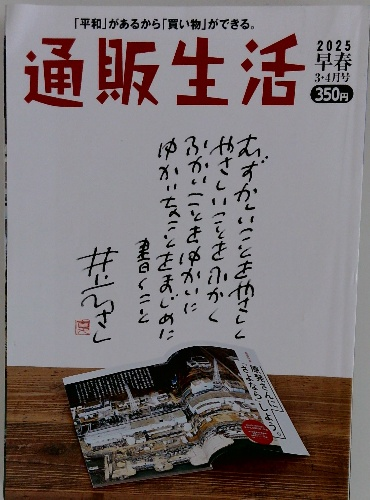 「平和」があるから「買い物」ができる。
通販生活
2025
早春
3・4月号
350円
むずかしいことをやさしく
やさしいことをふかく
ふかいことをゆかいに
ゆかいなことをまじめに
書くこと
井上ひさし
原発さんに
さよならしよう。